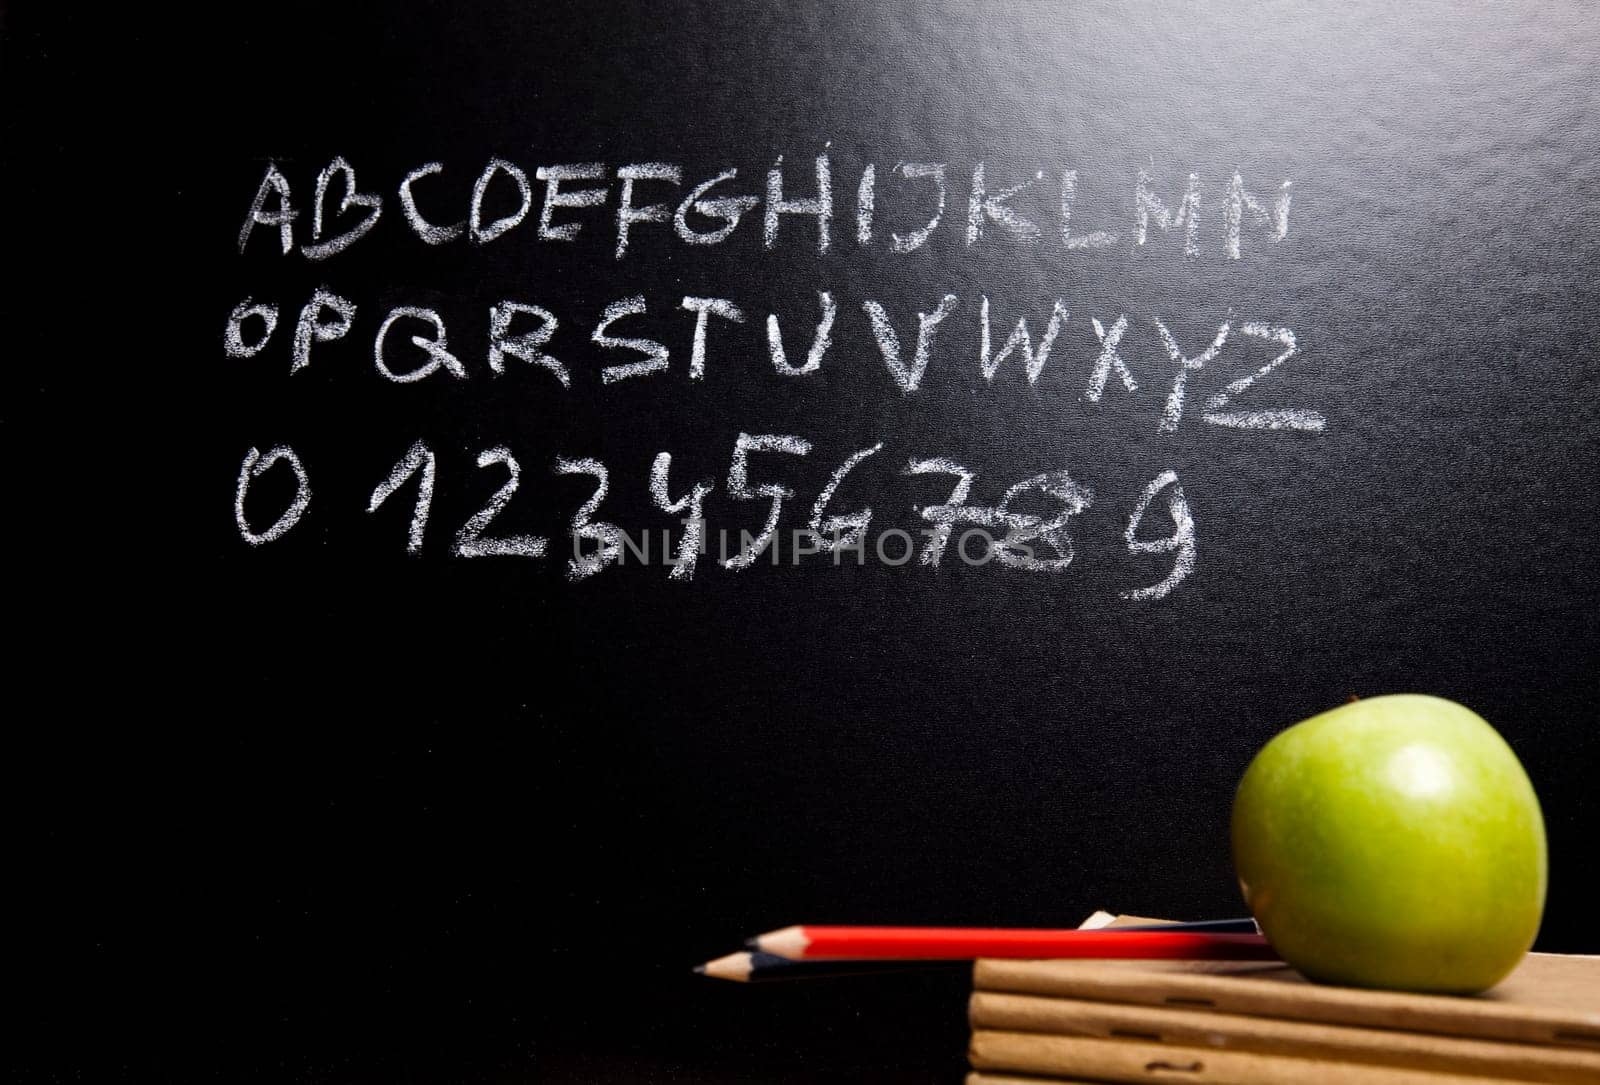 ABCDEFGHIJKLMN
OPQRSTUVWXYZ
0 123456789
UNLIMPHOTOS